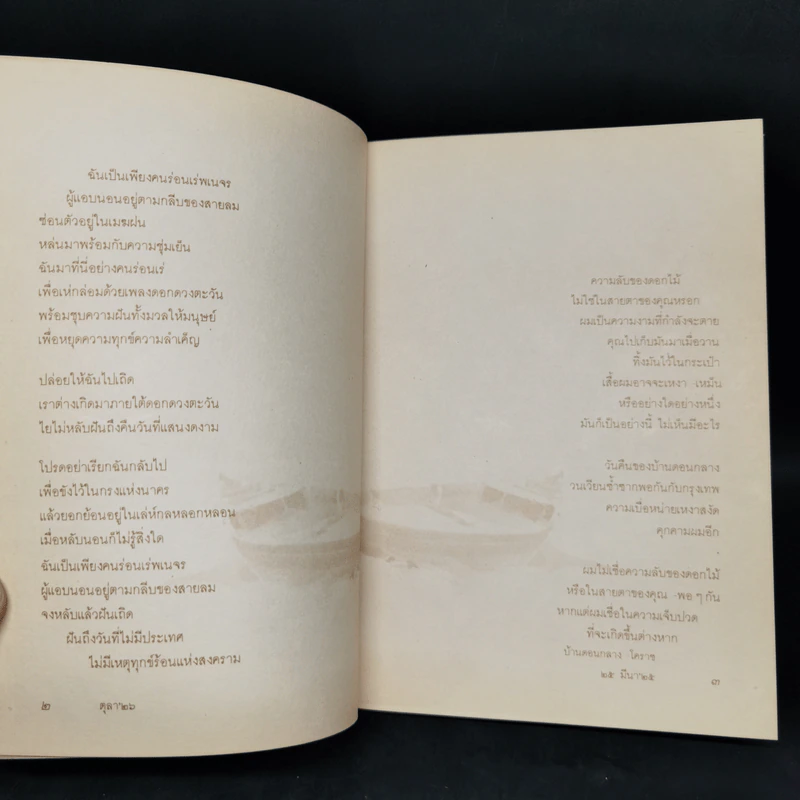 ฉันเป็นเพียงคนร่อนเร่พเนจร
ผู้แอบนอนอยู่ตามกลีบของสายลม
ซ่อนตัวอยู่ในเมฆฝน
หล่นมาพร้อมกับความชุ่มเย็น
ฉันมาที่นี่อย่างคนร่อนเร่
เพื่อเห่กล่อมด้วยเพลงดอกดวงตะวัน
พร้อมชุบความฝันทั้งมวลให้มนุษย์
เพื่อหยุดความทุกข์ความลำเค็ญ
ปล่อยให้ฉันไปเถิด
เราต่างเกิดมาภายใต้ดอกดวงตะวัน
ไยไม่หลับฝันถึงคืนวันที่แสนงดงาม
โปรดอย่าเรียกฉันกลับไป
เพื่อขังไว้ในกรงแห่งนาคร
แล้วยอกย้อนอยู่ในเล่ห์กลหลอกหลอน
เมื่อหลับนอนก็ไม่รู้สิ่งใด
ฉันเป็นเพียงคนร่อนเร่พเนจร
ผู้แอบนอนอยู่ตามกลีบของสายลม
จงหลับแล้วฝันเถิด
ฝันถึงวันที่ไม่มีประเทศ
ไม่มีเหตุทุกข์ร้อนแห่งสงคราม
๒ ตุลา'๒๖
ความลับของดอกไม้
ไม่ใช่ในสายตาของคุณหรอก
ผมเป็นความงามที่กำลังจะตาย
คุณไปเก็บมันมาเมื่อวาน
ทิ้งมันไว้ในกระเป๋า
เสื้อผมอาจจะเหงา เหม็น
หรืออย่างใดอย่างหนึ่ง
มันก็เป็นอย่างนี้ ไม่เห็นมีอะไร
วันคืนของบ้านดอนกลาง
วนเวียนซ้ำซากพอกันกับกรุงเทพ
ความเบื่อหน่ายเหงาสงัด
คุกคามผมอีก
ผมไม่เชื่อความลับของดอกไม้
หรือในสายตาของคุณ พอๆกัน
หากแต่ผมเชื่อในความเจ็บปวด
ที่จะเกิดขึ้นต่างหาก
บ้านดอนกลาง โคราช
๒๕ มีนา'๒๕ ๓